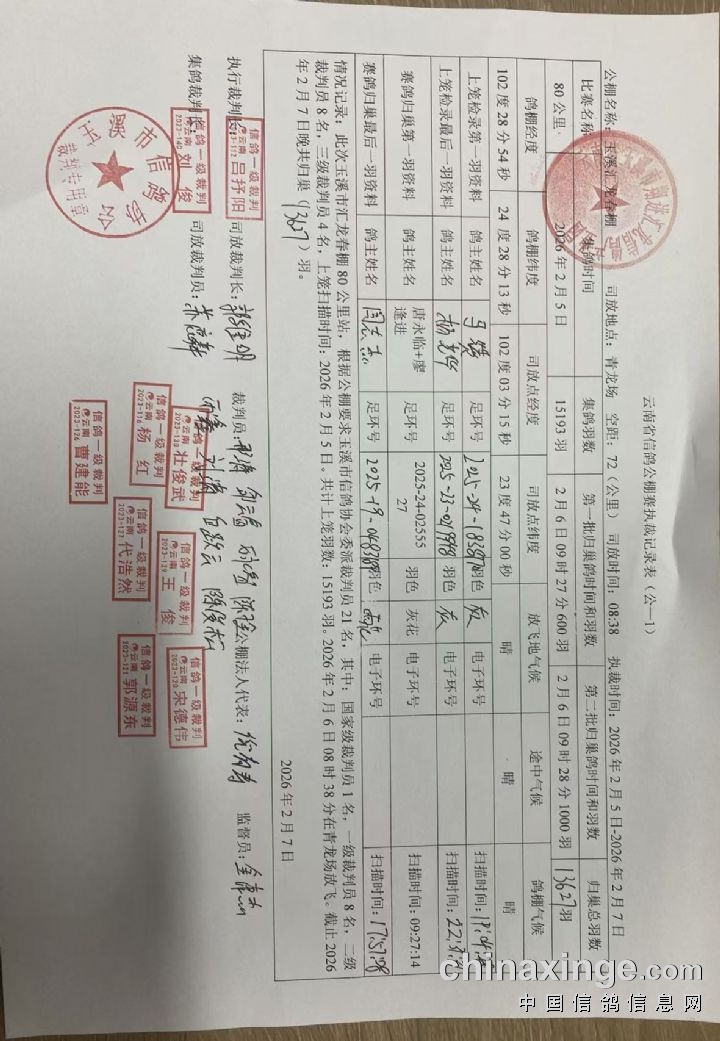 云南省信鸽公棚赛执裁记录表（公—1）
公棚名称：玉溪汇龙春棚 司放地点：青龙场 空距：72（公里）司放时间：08:38 执裁时间：2026年2月5日-2026年2月7日
比赛名称 集鸽时间 集鸽羽数 第一批归巢鸽时间和羽数 第二批归巢鸽时间和羽数 归巢总羽数
80公里 2026年2月5日 15193羽 2月6日09时27分600羽 2月6日09时28分1000羽 13627羽
鸽棚经度 鸽棚纬度 司放点经度 司放点纬度 放飞地气候 途中气候 鸽棚气候
102度28分54秒 24度28分13秒 102度03分15秒 23度47分00秒 晴 晴 晴
上笼检录第一羽资料 鸽主姓名 足环号 羽色 灰 电子环号 扫描时间：
上笼检录最后一羽资料 鸽主姓名 足环号 羽色 灰 电子环号 扫描时间：
赛鸽归巢第一羽资料 鸽主姓名 唐永临+廖逢进 足环号 2025-24-0255527 羽色 灰花 电子环号 扫描时间：09:27:14
赛鸽归巢最后一羽资料 鸽主姓名 足环号 羽色 电子环号 扫描时间：17:57:08
情况记录：此次玉溪市汇龙春棚80公里站，根据公棚要求玉溪市信鸽协会委派裁判员21名，其中：国家级裁判员1名，一级裁判员8名，二级
裁判员8名，三级裁判员4名，上笼扫描时间：2026年2月5日。共计上笼羽数：15193羽。2026年2月6日08时38分在青龙场放飞。截止2026
年2月7日晚共归巢（13627）羽。
2026年2月7日
执行裁判长： 司放裁判长： 裁判员： 公棚法人代表： 监督员：
集鸽裁判长： 司放裁判员：
信鸽一级裁判 云南 吕抒阳
信鸽一级裁判 云南 刘俊 2023-140
信鸽一级裁判 云南 壮俊武
信鸽一级裁判 云南 杨红
信鸽一级裁判 云南 曹建能
信鸽一级裁判 云南 王俊
信鸽一级裁判 云南 代浩然
信鸽一级裁判 云南 宋德伟
信鸽一级裁判 云南 郭源东
玉溪市信鸽协会
裁判专用章
chinaxinge.com
中国信鸽信息网